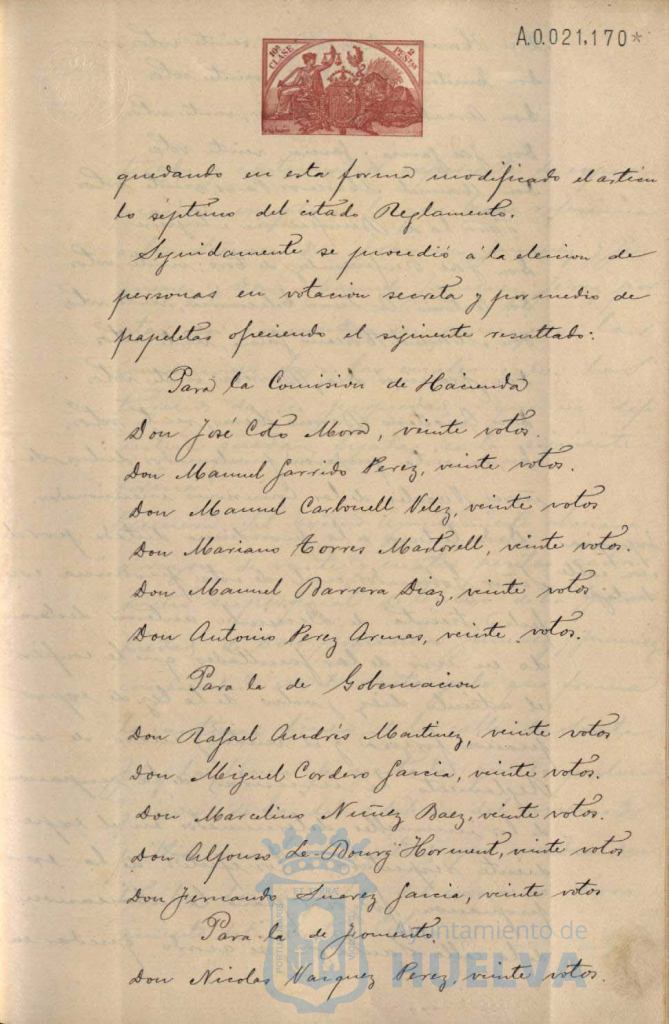 A.0.021,170*
10ª CLASE
2 PESETAS
quedando en esta forma modificado el artícu
lo séptimo del citado Reglamento.
Seguidamente se procedió á la eleccion de
personas en votacion secreta y por medio de
papeletas ofreciendo el siguiente resultado:
Para la Comisión de Hacienda
Don José Coto Mora, veinte votos.
Don Manuel Garrido Perez, veinte votos.
Don Manuel Carbonell Velez, veinte votos
Don Mariano Torres Martorell, veinte votos.
Don Manuel Barrera Diaz, veinte votos
Don Antonio Perez Arenas, veinte votos.
Para la de Gobernacion
Don Rafael Andrés Martinez, veinte votos
Don Miguel Cordero Garcia, veinte votos.
Don Marcelino Nuñez Baez, veinte votos.
Don Alfonso Le-Bourg Horment, veinte votos
Don Fernando Suarez Garcia, veinte votos
Para la de Fomento.
Don Nicolas Vazquez Perez, veinte votos.
Ayuntamiento de
HUELVA